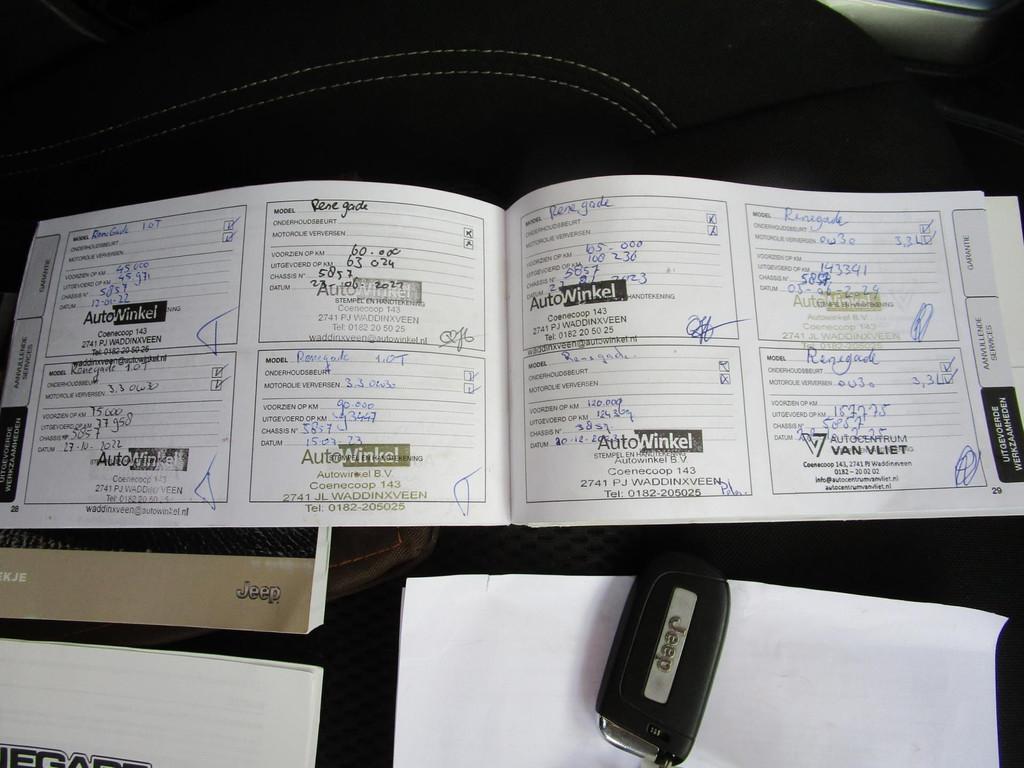 GARANTIE
AANVULLENDE SERVICES
UITGEVOERDE WERKZAAMHEDEN
28
MODEL ReneGade 1.0T
ONDERHOUDSBEURT
MOTOROLIE VERVERSEN
VOORZIEN OP KM 45.000
UITGEVOERD OP KM 45.971
CHASSIS N° 5857
DATUM 12-01-22
AutoWinkel
Coenecoop 143
2741 PJ WADDINXVEEN
Tel: 0182 20 50 25
waddinxveen@autowinkel.nl
MODEL Renegade 1.0T
ONDERHOUDSBEURT
MOTOROLIE VERVERSEN 3.3 0W30
VOORZIEN OP KM 75000
UITGEVOERD OP KM 77958
CHASSIS N° 5857
DATUM 27-10-2022
AutoWinkel
Coenecoop 143
2741 PJ WADDINXVEEN
Tel: 0182 20 50
waddinxveen@autowinkel.nl
MODEL Renegade
ONDERHOUDSBEURT
MOTOROLIE VERVERSEN
VOORZIEN OP KM 60.000
UITGEVOERD OP KM 63 024
CHASSIS N° 5857
DATUM 06-2022
AutoWinkel
STEMPEL EN HANDTEKENING
Coenecoop 143
2741 PJ WADDINXVEEN
Tel: 0182 20 50 25
waddinxveen@autowinkel.nl
MODEL Renegade 1.0T
ONDERHOUDSBEURT
MOTOROLIE VERVERSEN 3.3 0W30
VOORZIEN OP KM 90.000
UITGEVOERD OP KM
CHASSIS N° 5857
DATUM 15-03-23
AutoWinkel
STEMPEL EN HANDTEKENING
Autowinkel B.V.
Coenecoop 143
2741 JL WADDINXVEEN
Tel: 0182-205025
MODEL Renegade
ONDERHOUDSBEURT
MOTOROLIE VERVERSEN
VOORZIEN OP KM 105-000
UITGEVOERD OP KM 100 236
CHASSIS N° 5857
DATUM 2023
AutoWinkel
STEMPEL EN HANDTEKENING
Coenecoop 143
2741 PJ WADDINXVEEN
Tel: 0182 20 50 25
waddinxveen@autowinkel.nl
MODEL Renegade
ONDERHOUDSBEURT
MOTOROLIE VERVERSEN
VOORZIEN OP KM 120.000
UITGEVOERD OP KM
CHASSIS N°
DATUM 20-12-20
AutoWinkel
STEMPEL EN HANDTEKENING
Autowinkel B.V.
Coenecoop 143
2741 PJ WADDINXVEEN
Tel: 0182-205025
MODEL Renegade
ONDERHOUDSBEURT
MOTOROLIE VERVERSEN 0W30 3,3L
VOORZIEN OP KM
UITGEVOERD OP KM 143341
CHASSIS N° 5857
DATUM
AutoWinkel
Autowinkel B.V.
Coenecoop 143
2741 JL WADDINXVEEN
Tel: 0182-205025
MODEL Renegade
ONDERHOUDSBEURT
MOTOROLIE VERVERSEN 0W30 3,3L
VOORZIEN OP KM
UITGEVOERD OP KM
CHASSIS N° 5857
DATUM
AUTOCENTRUM
VAN VLIET
Coenecoop 143, 2741 PJ Waddinxveen
0182 - 20 02 02
info@autocentrumvanvliet.nl
autocentrumvanvliet.nl
GARANTIE
AANVULLENDE SERVICES
UITGEVOERDE WERKZAAMHEDEN
29
EKJE
Jeep
Jeep
NEGADE